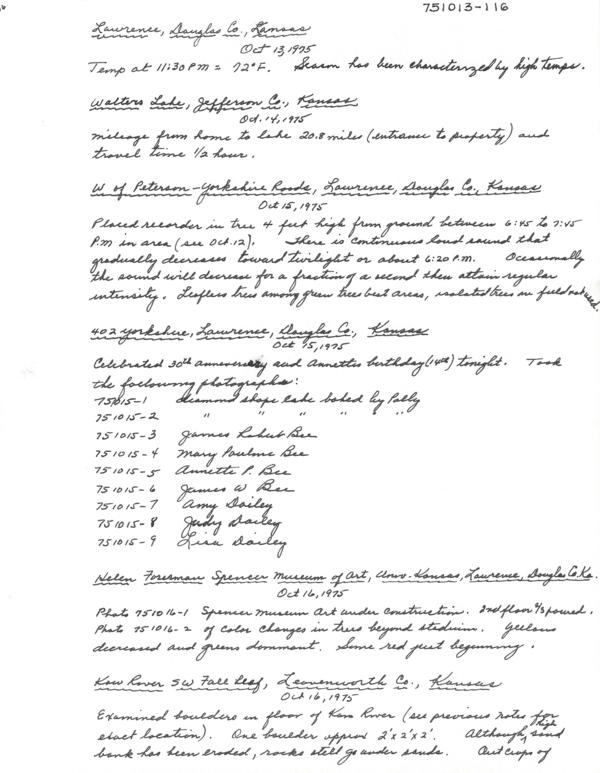 751013-116
Lawrence, Douglas Co., Kansas
Oct 13, 1975
Temp at 11:30 PM = 72°F. Season has been characterized by high temps.
Walters Lake, Jefferson Co., Kansas
Oct. 14, 1975
mileage from home to lake 20.8 miles (entrance to property) and
travel time 1/2 hour.
W of Peterson-Yorkshire Roads, Lawrence, Douglas Co., Kansas
Oct 15, 1975
Placed recorder in tree 4 feet high from ground between 6:45 to 7:45
P.M in area (see Oct. 12). There is continuous loud sound that
gradually decreases toward twilight or about 6:20 P.M. Occasionally
the sound will decrease for a fraction of a second then attain regular
intensity. Leafless trees among green trees best areas, isolated trees in field not used.
402 Yorkshire, Lawrence, Douglas Co., Kansas
Oct 15, 1975
Celebrated 30th anniversary and Annettes birthday (14th) tonight. Took
the following photographs:
751015-1 diamond shape cake baked by Polly
751015-2 " " " " " "
751015-3 James Robert Bee
751015-4 Mary Pauline Bee
751015-5 Annette P. Bee
751015-6 James W Bee
751015-7 Amy Dailey
751015-8 Judy Dailey
751015-9 Lisa Dailey
Helen Foresman Spencer Museum of Art, Univ. Kansas, Lawrence, Douglas Co. Ka.
Oct 16, 1975
Photo 751016-1 Spencer Museum Art under construction. 2nd floor 1/3 poured.
Photo 751016-2 of color changes in trees beyond stadium. Yellows
decreased and greens dominant. Some red just beginning.
Kaw River SW Fall Leaf, Leavenworth Co., Kansas
Oct. 16, 1975
Examined boulders in floor of Kaw River (see previous notes for
exact location). One boulder approx 2'x2'x2'. Although, high sand
bank has been eroded, rocks still go under sands. Outcrops of